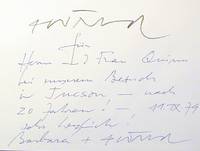 für
Herrn u Frau Quinn
bei unserem Besuch
in Tucson — nach
20 Jahren! — 11. IX 79
sehr herzlich!
Barbara +